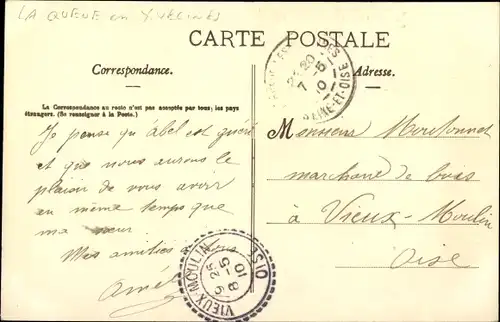 LA QUEUE en YVELINES
CARTE POSTALE
Correspondance.
Adresse.
La Correspondance au recto n'est pas acceptée par tous les pays
étrangers. (Se renseigner à la Poste.)
Je pense qu'abel est guéri
et que nous aurons le
plaisir de vous avoir
en même temps que
ma sœur
Mes amitiés à tous
Monsieur Moutonnet
marchand de bois
à Vieux-Moulin
Oise
21-20
7-5
10
SEINE-ET-OISE
VIEUX-MOULIN
9 25
8-5
10
OISE